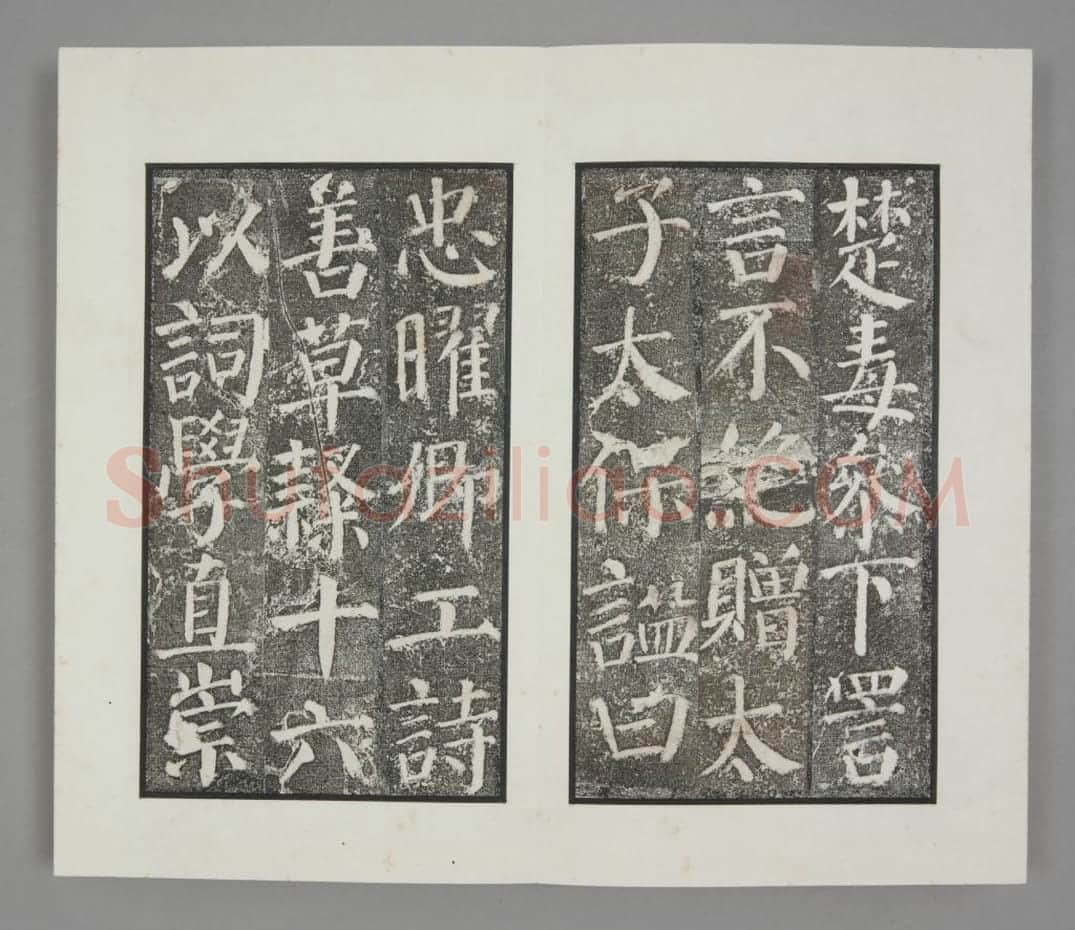 楚毒叅下詈
言不絶贈太
子太保謚曰
忠曜卿工詩
善草隸十六
以詞學直崇
Shufaziliao.COM